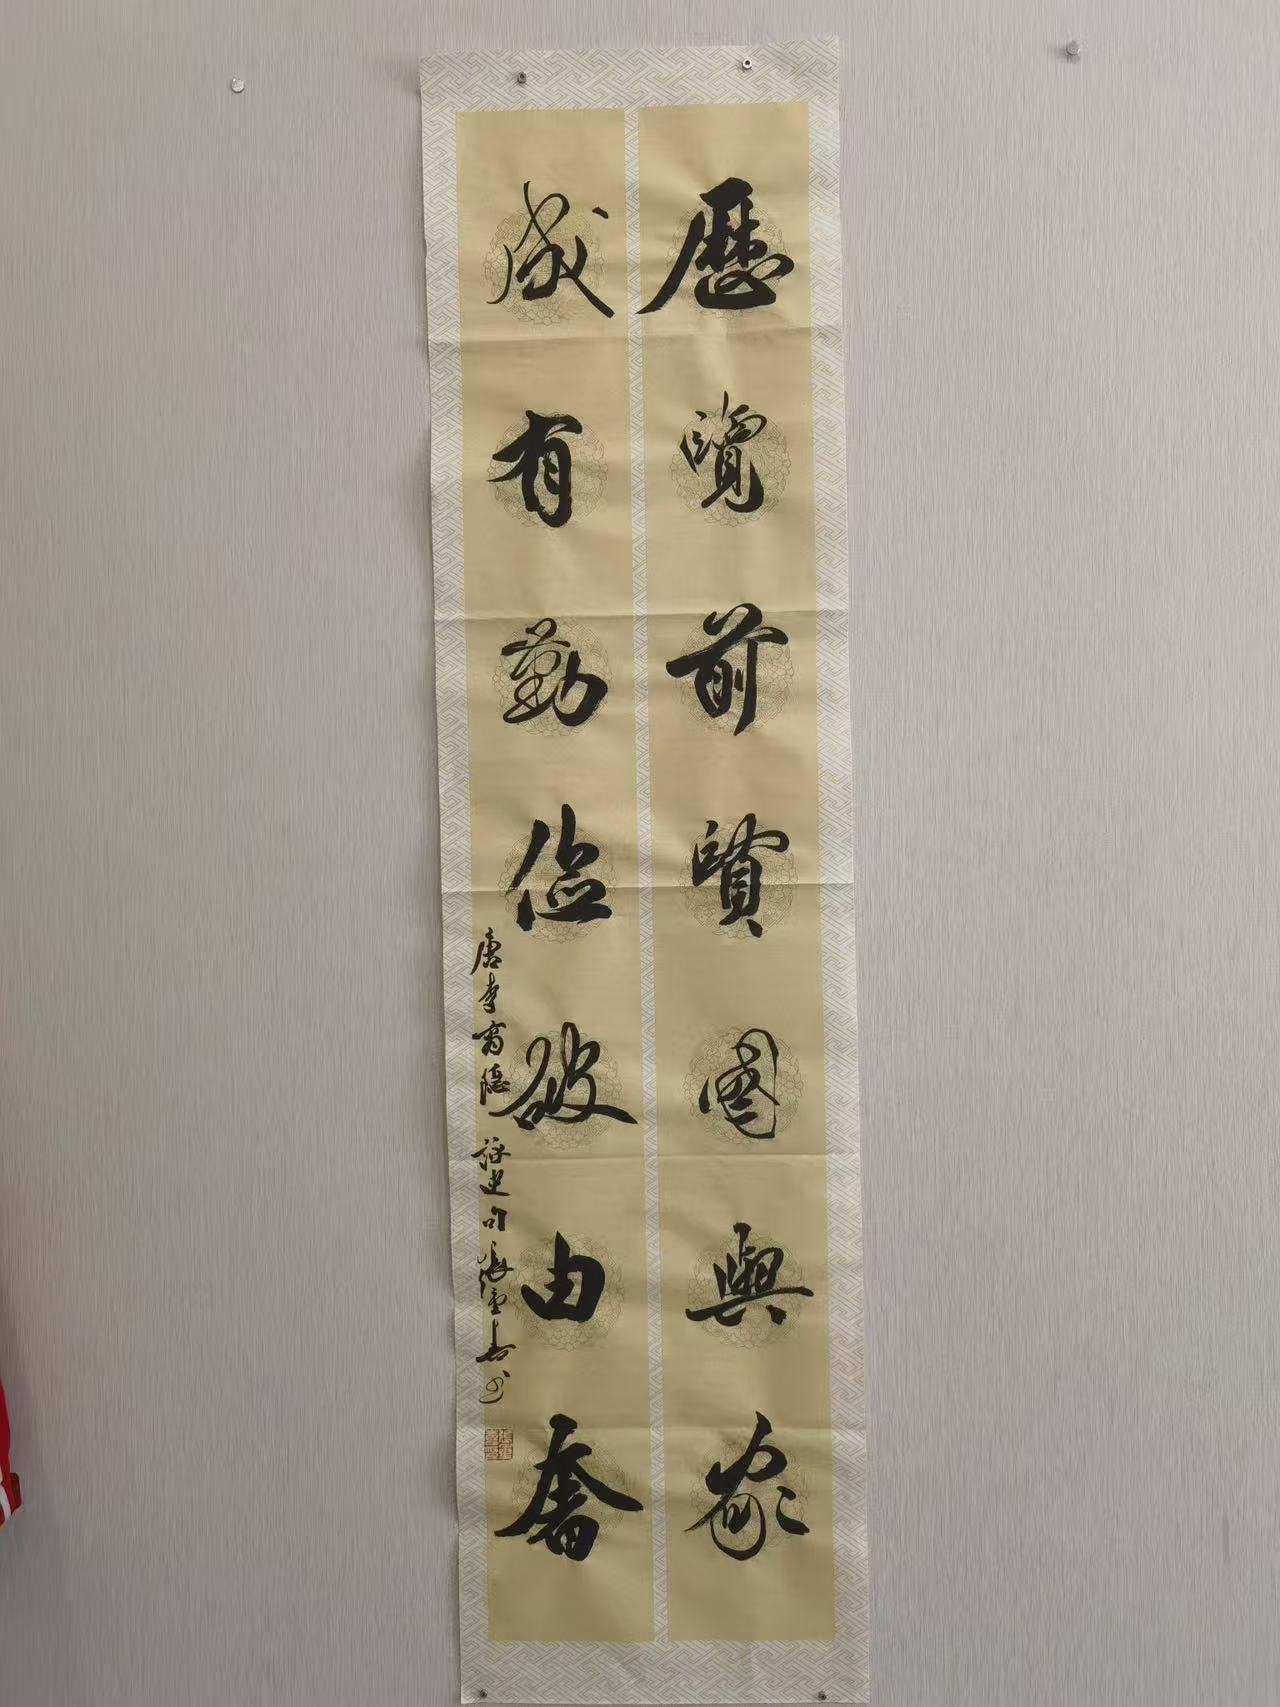 歷覽前賢國與家
成有勤儉破由奢
唐李商隱詠史句張書